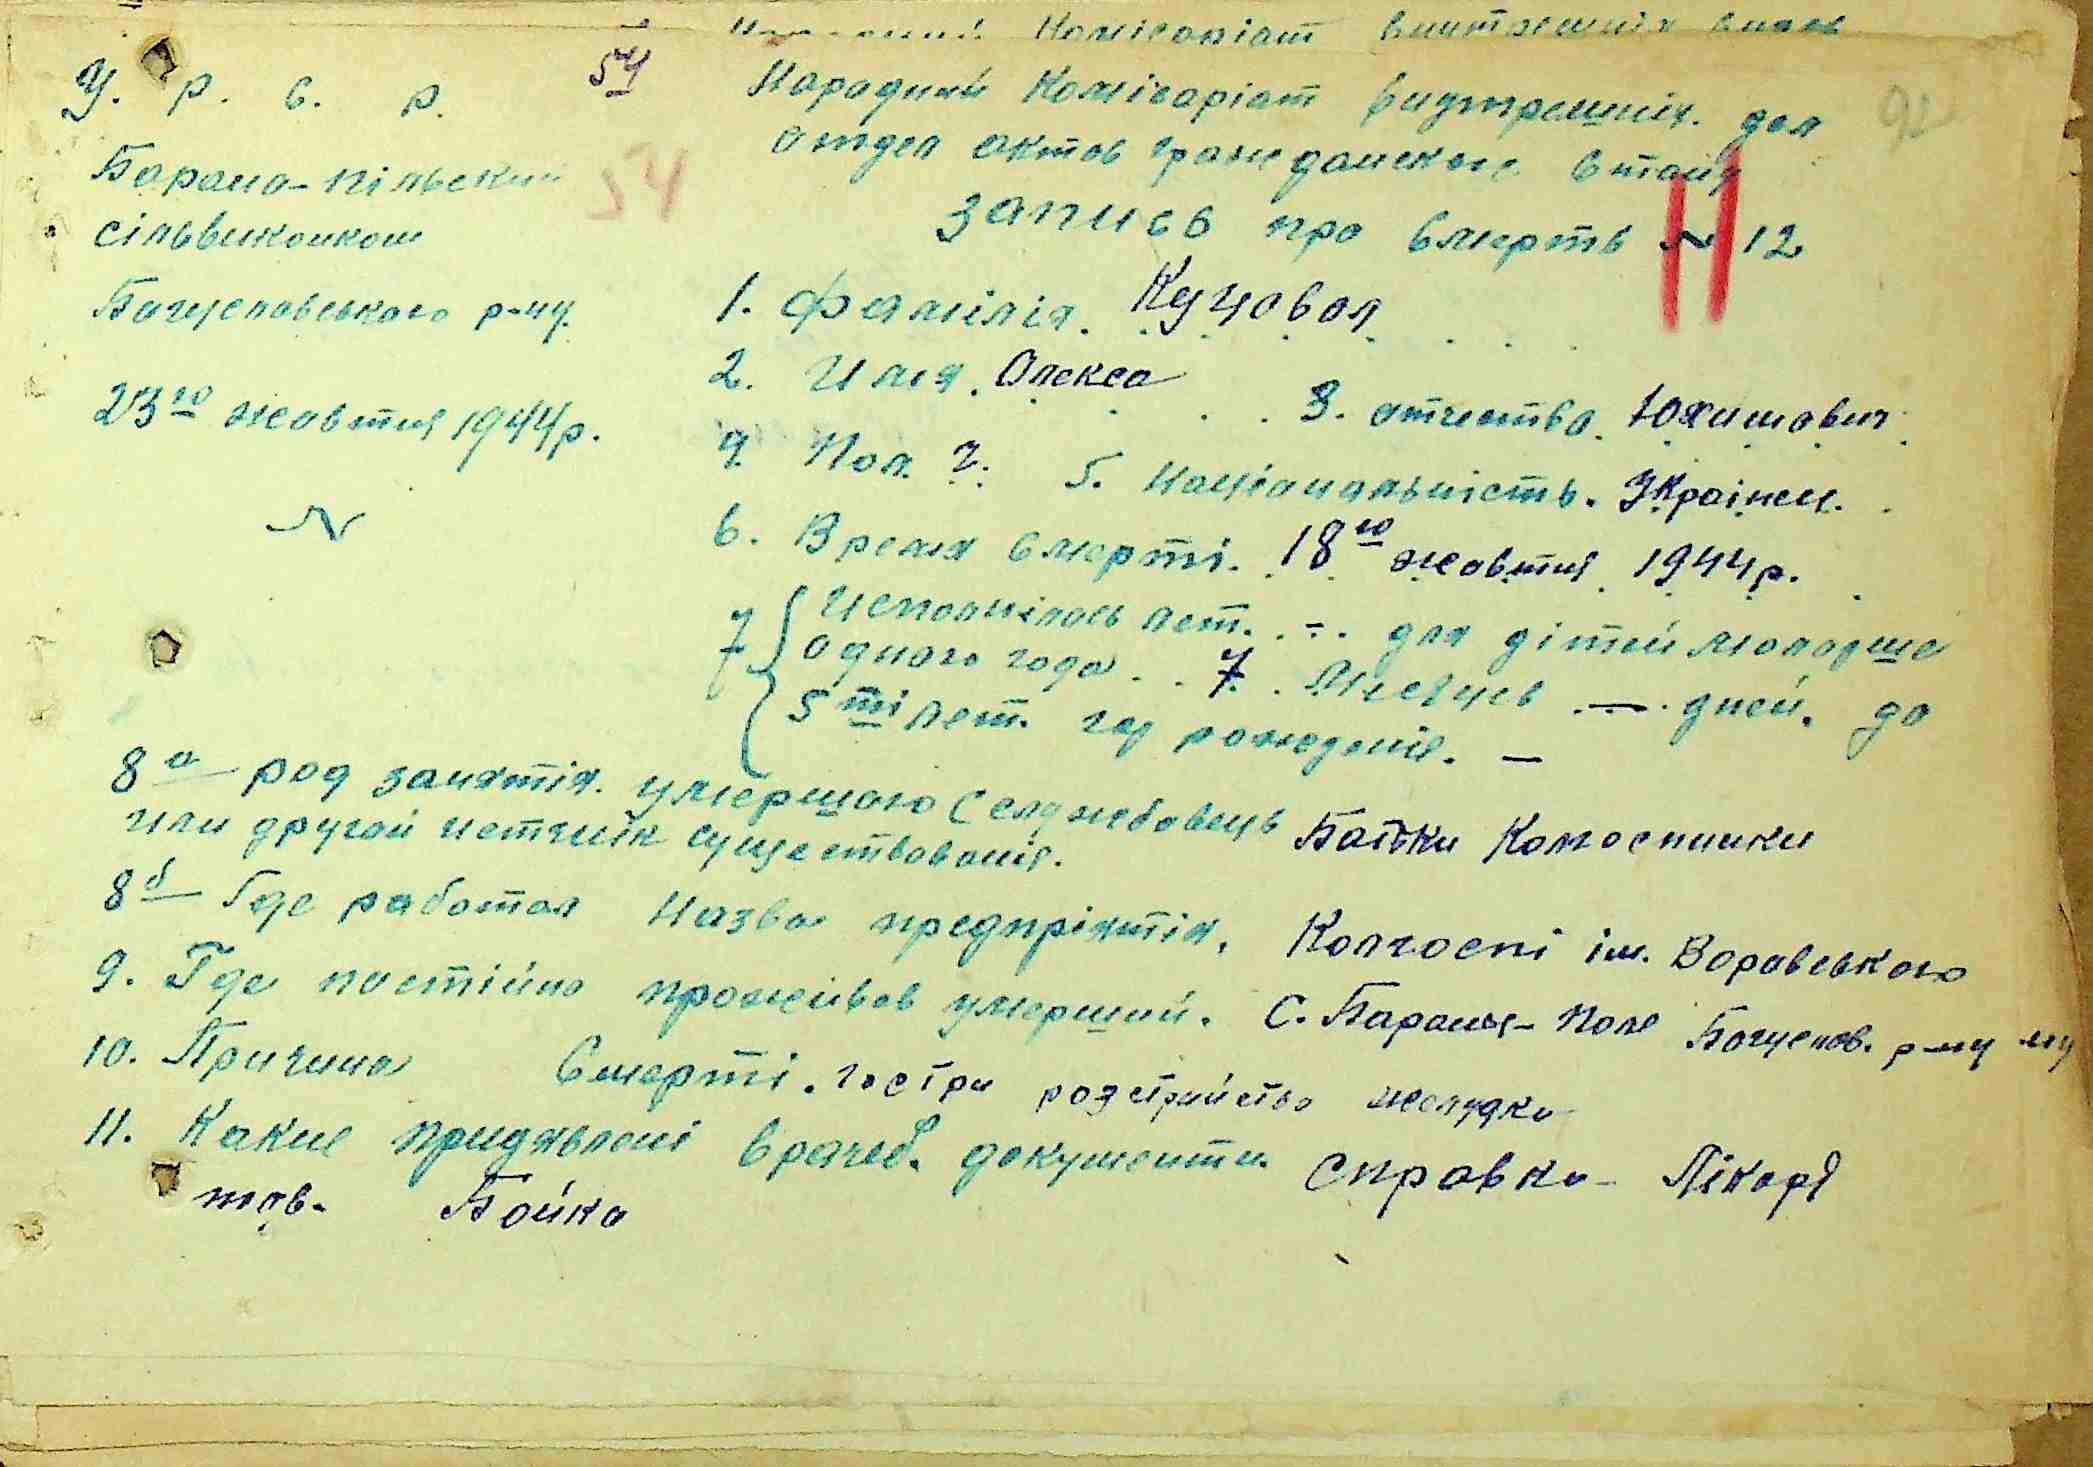 Комісаріат
У. Р. С. Р.
54
54
92
Барано-пільський
сільвиконком
Богуславського р-ну.
23го жовтня 1944р.
N
Народний Комісаріат внутрешніх. дел
отдел актов гражданского встану
запись про смерть N 12
1. Фамілія. Куцовол
2. Имя. Олекса 3. отчество. Юхимович
4. Пол. ч. 5. Національність. Украінец.
6. Время смерті. 18го жовтня 1944р.
7 Исполнілось лет. -. для дітей молодше
одного года . . 7 . Месяцев — дней. до
5ти лет. год рождения. —
8а род занятія. умершого (службовець Батьки Колгоспники
или другой источнік существованія.
8б Где работал Назва предпріятія, Колгоспі ім. Воровського
9. Где постійно проживав умерший. С. Бараньє-Поле Богуслов. р-ну
10. Причина Смерті. гостри розстрийство желудка
11. Какие придявлені врачеб. документи. справка Лікаря
тов. Бойка